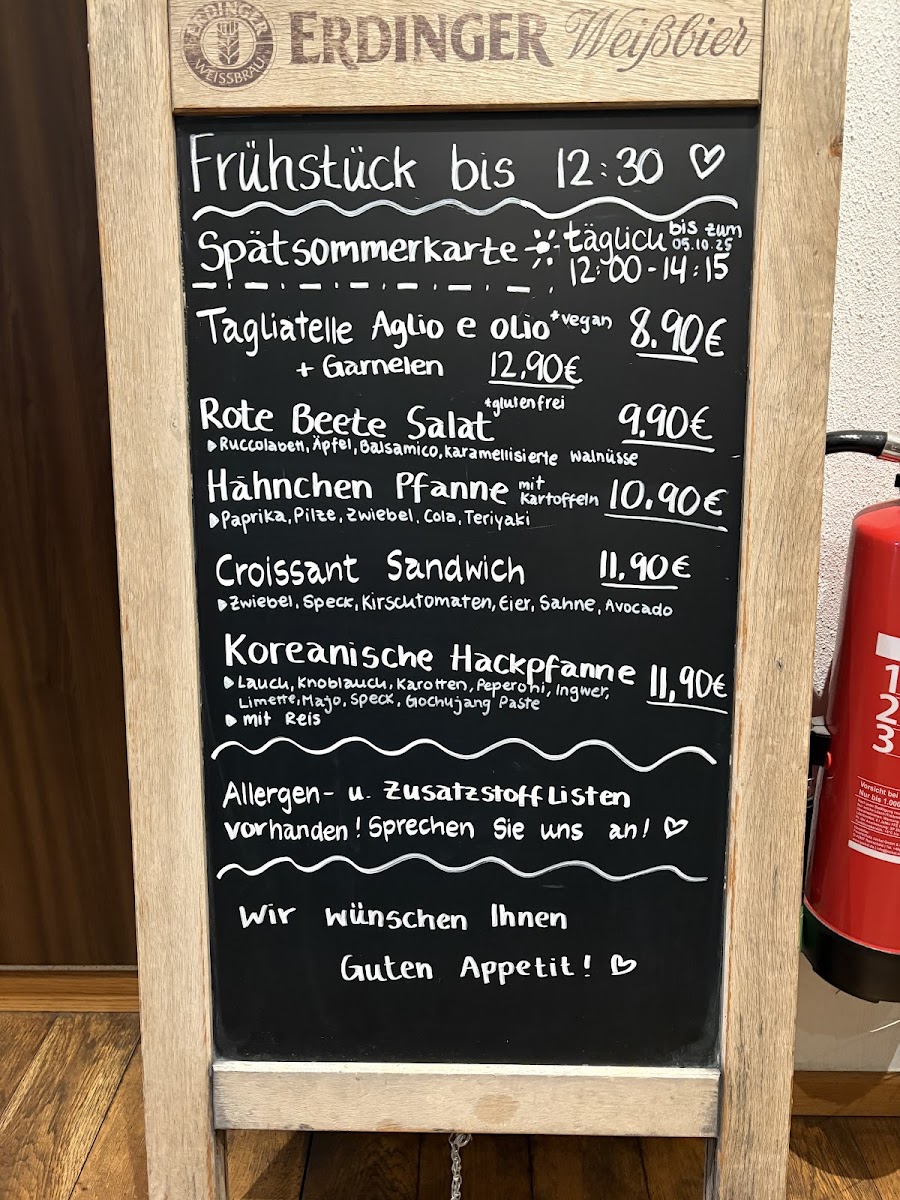 ERDINGER WEISSBRÄU
ERDINGER Weißbier
Frühstück bis 12:30
Spätsommerkarte täglich bis zum 05.10.25
12:00-14:15
Tagliatelle Aglio e olio *vegan 8.90€
+ Garnelen 12,90€
Rote Beete Salat *glutenfrei 9.90€
Ruccolabett, Äpfel, Balsamico, karamellisierte Walnüsse
Hähnchen Pfanne mit Kartoffeln 10.90€
Paprika, Pilze, Zwiebel, Cola, Teriyaki
Croissant Sandwich 11,90€
Zwiebel, Speck, Kirschtomaten, Eier, Sahne, Avocado
Koreanische Hackpfanne 11,90€
Lauch, Knoblauch, Karotten, Peperoni, Ingwer,
Limette, Majo, Speck, Gochujang Paste
mit Reis
Allergen- u. Zusatzstofflisten
vorhanden! Sprechen Sie uns an!
Wir wünschen Ihnen
Guten Appetit!
1
2
3
Vorsicht bei
Nur bis 1.000